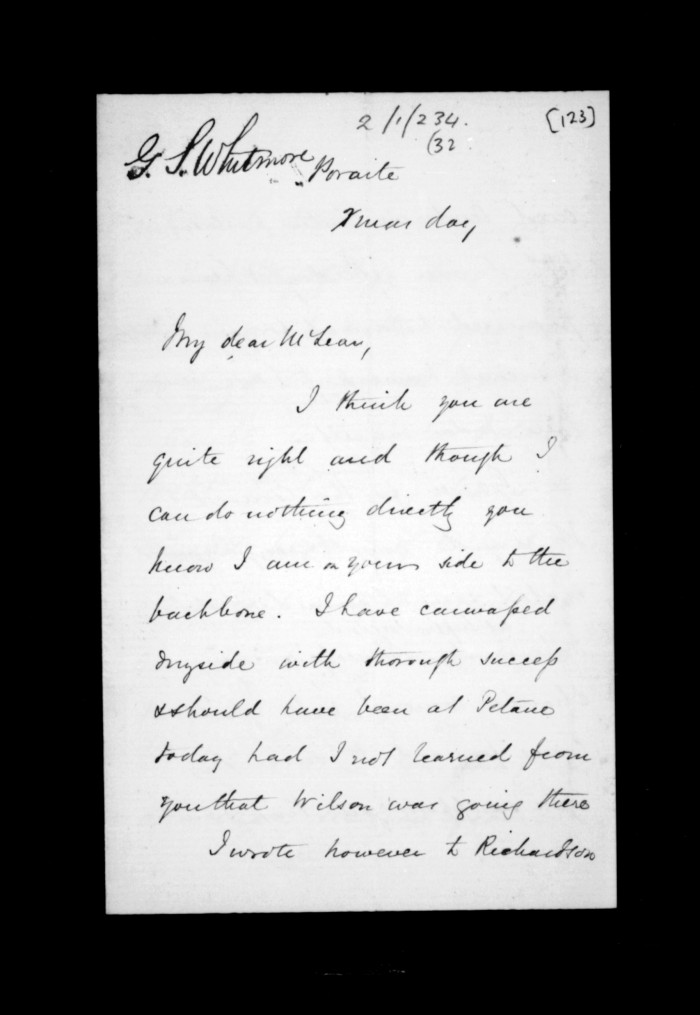 2/1/234.
(32
[123]
G. S. Whitmore
Poraite
Xmas day
My dear McLean,
I think you are
quite right and though I
can do nothing directly you
know I am on yours side to the
backbone. I have canvassed
dryside with thorough success
& should have been at Petane
today had I not learned from
you that Wilson was going there
I wrote however to Richardson